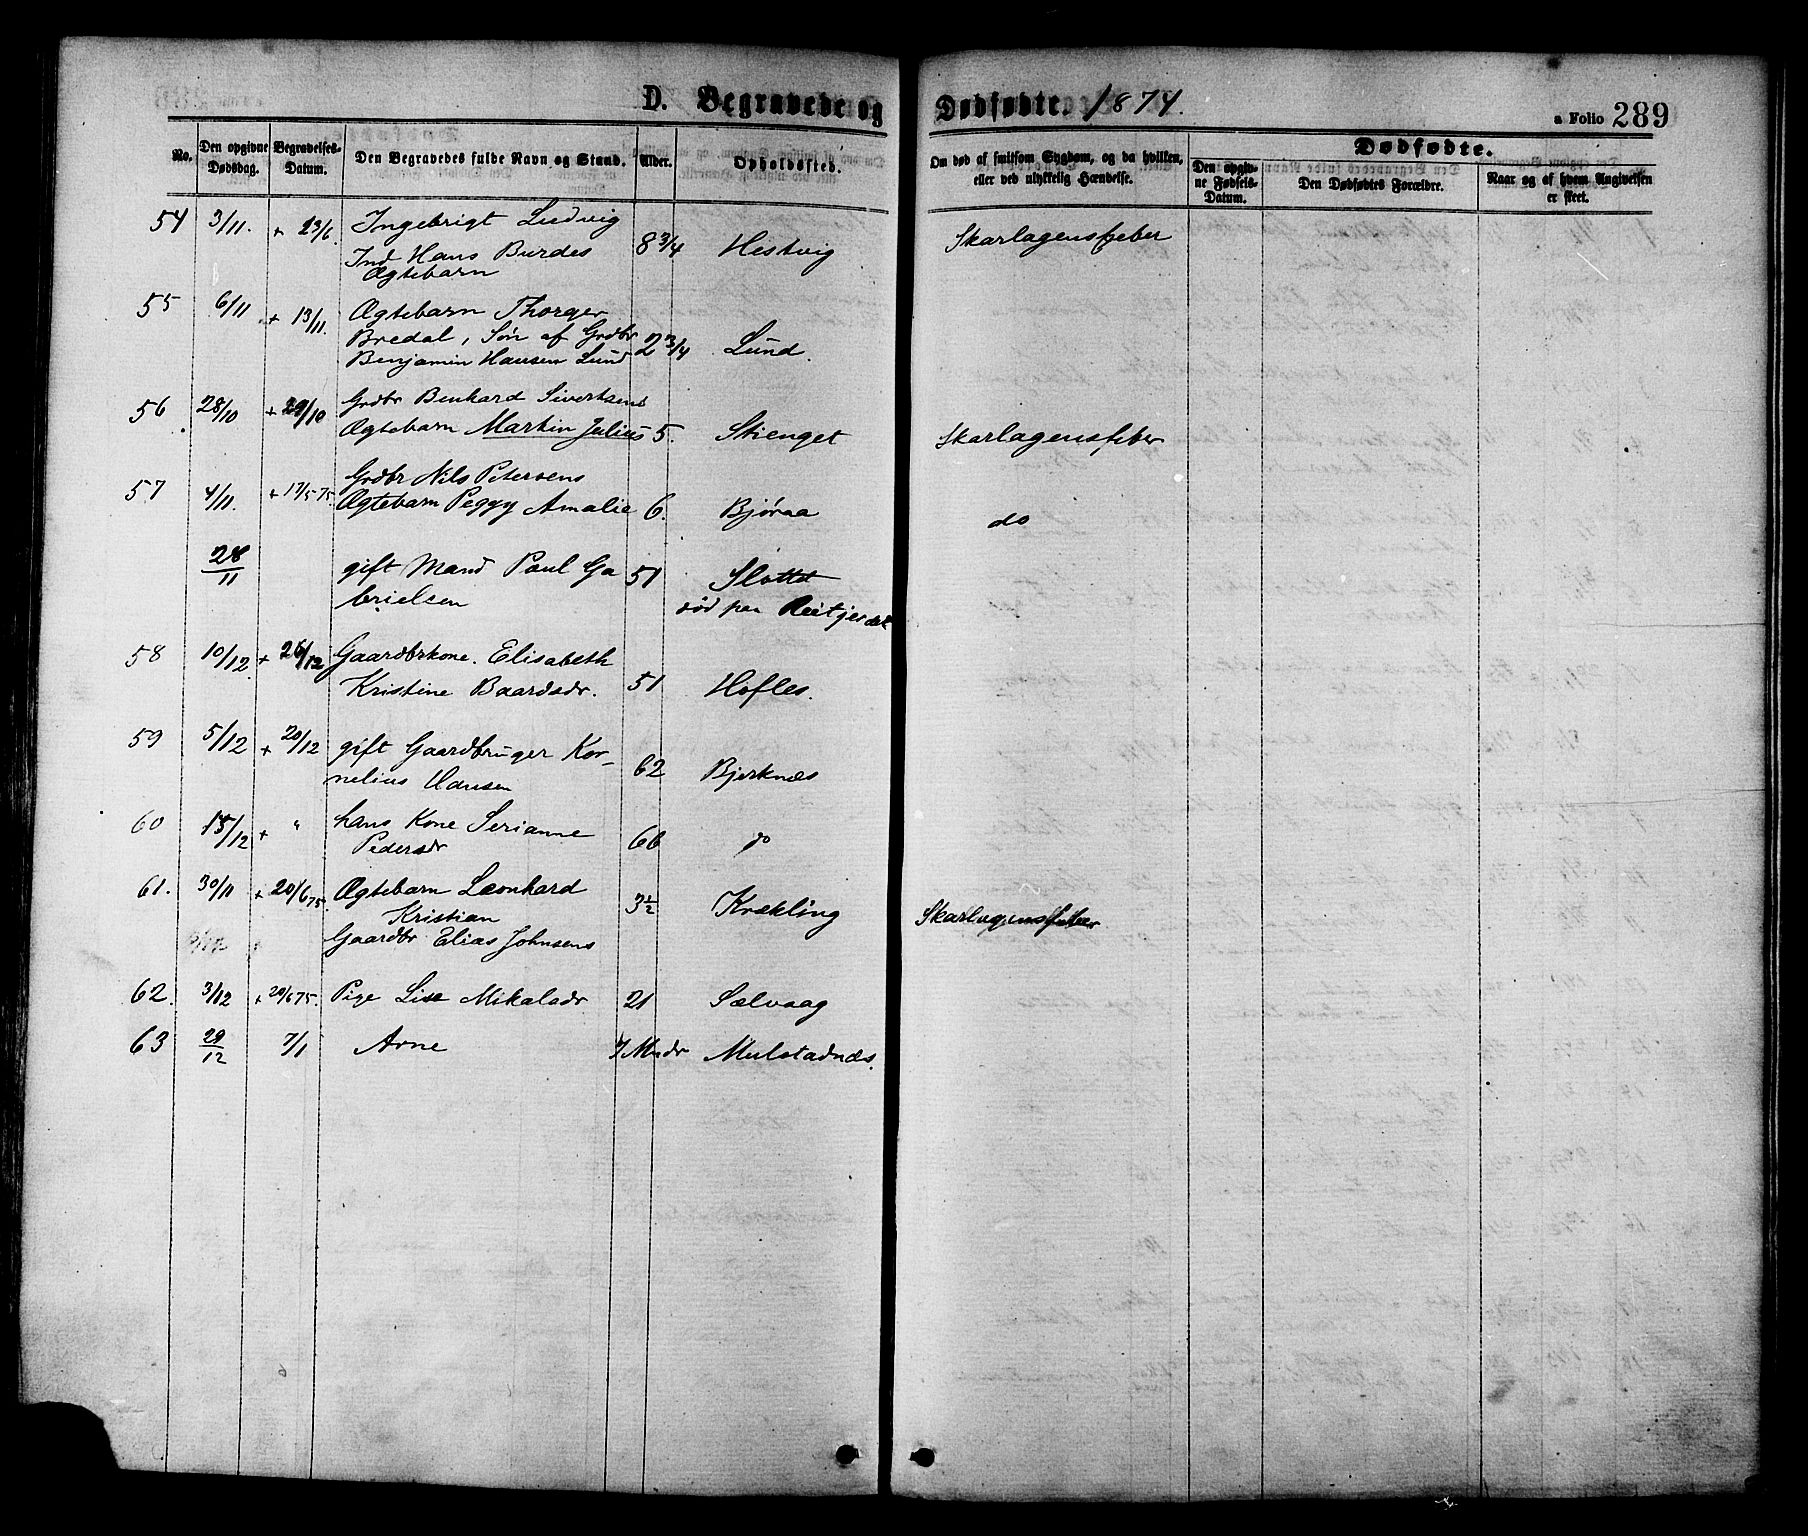 D. Begravede og Dødfødte. 1874.
a Folio 289
No.
Den opgivne Dødsdag.
Begravelses-Datum.
Den Begravedes fulde Navn og Stand.
Alder.
Opholdssted.
Om død af smitsom Sygdom, og da hvilken,
eller ved ulykkelig Hændelse.
Dødfødte.
Den opgiv-
ne Fødsels-
Datum.
Den Dødfødtes Forældre.
Naar og af hvem Angivelsen
er skeet.
54 3/11. + 23/6. Ingebrigt Ludvig
Ind Hans Burdes 8 3/4 Hestvig Skarlagensfeber
Ægtebarn
55 6/11 + 13/11. Ægtebarn Thorger
Bredal, Søn af Grdbr 2 3/4 Lund.
Benjamin Hansen Lund
56 28/10 + 29/10 Grdbr Benhard Sivertsens
Ægtebarn Martin Julius 5. Stienget Skarlagensfeber
57 4/11. + 17/5 75. Grdbr Nils Petersens
Ægtebarn Peggy Amalie 6. Bjøraa do
28/11 gift Mand Paul Ga 51 Slotte
brielsen død paa
58 10/12. + 26/12 Gaardbrkone. Elisabeth
Kristine Baardsdr. 51 Hofles.
59 5/12 + 20/12 gift Gaardbruger Kor-
nelius Hansen 62 Bjerknæs
60 15/12 + " hans Kone Serianne
Pedersdr 66 do
61. 30/11 + 20/6 75. Ægtebarn Leonhard
Kristian 3½ Krækling Skarlagensfeber
Gaardbr Elias Johnsens
62. 3/12 + 20/6 75. Pige Lise Mikalsdr 21 Sælvaag
63 29/12 7/1 Arne 7 Mndr Mulstadnæs.